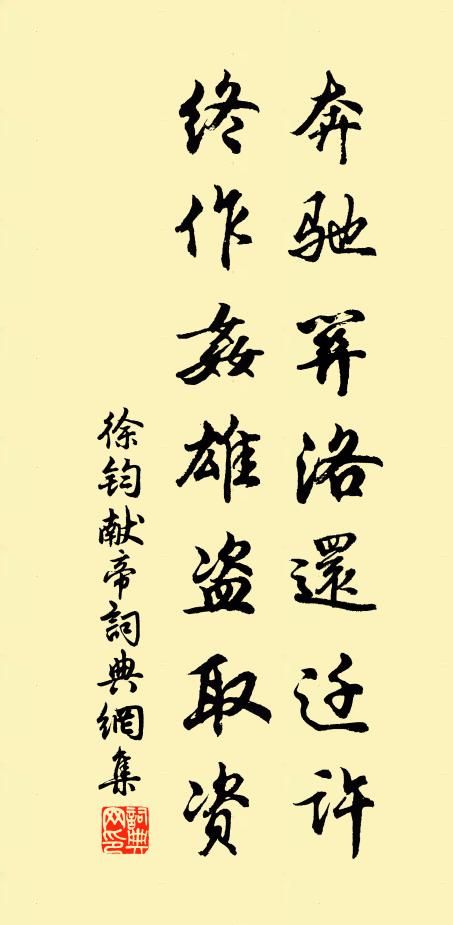 奔驰關洛還迁许
终作姦雄盗取资
徐钧献帝詞典網集
詞典网印